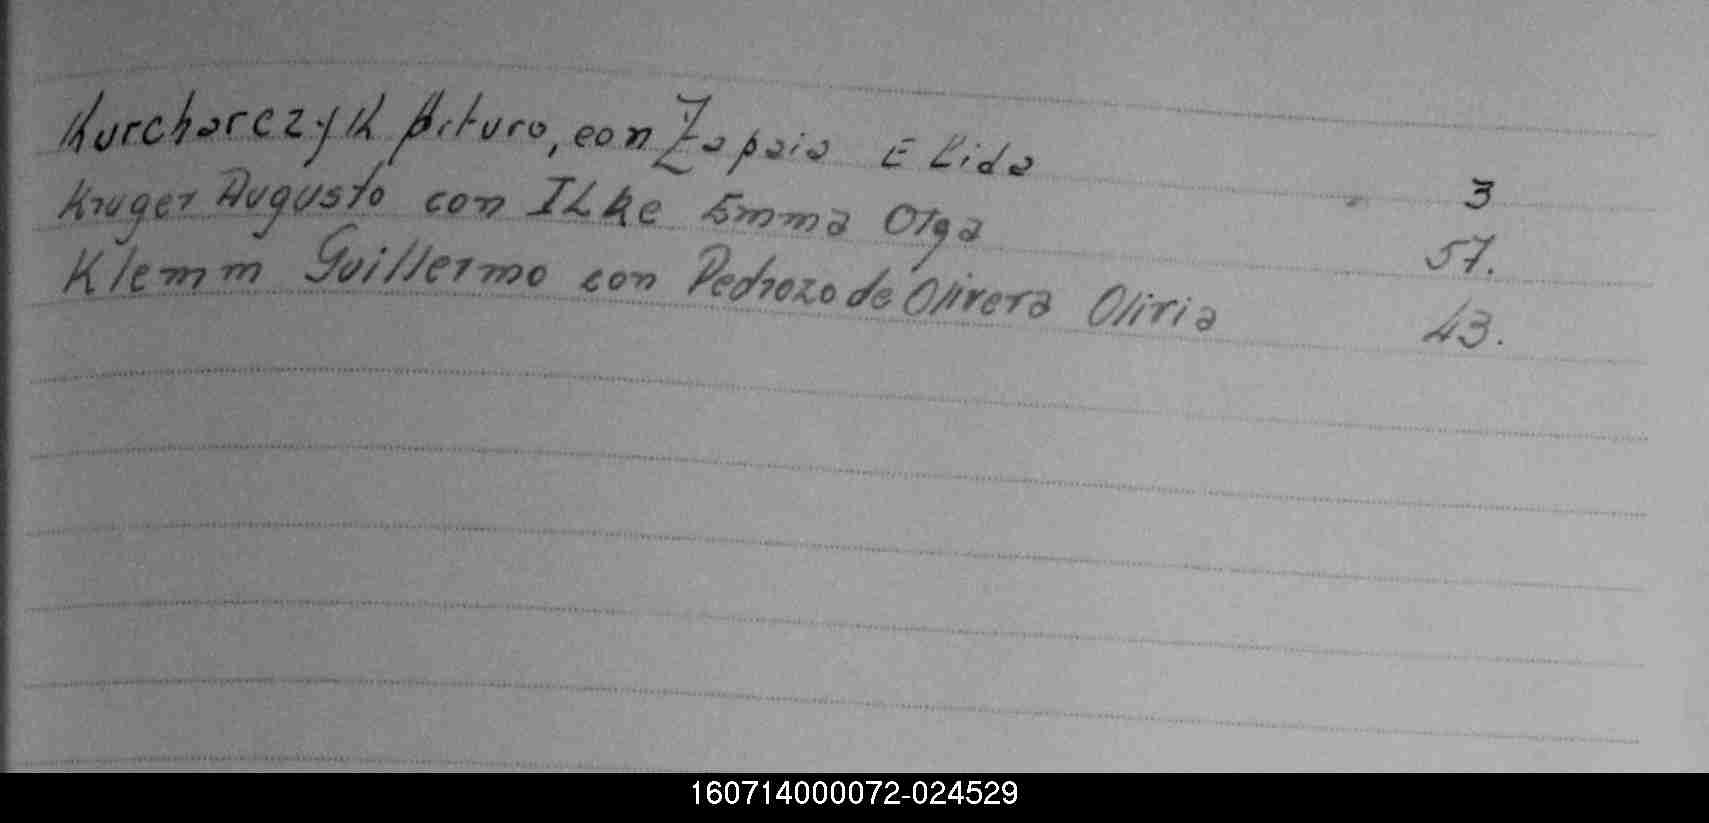 Kurcharczyk Arturo, con Zapaia Elida 3
Kruger Augusto con ILke Emma Olga 57.
Klemm Guillermo con Pedrozo de Olivera Oliria 43.
160714000072-024529